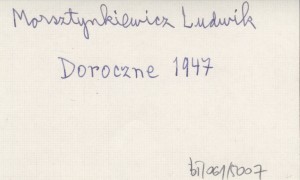 Morsztynkiewicz Ludwik
Doroczne 1947
bi/061/5007